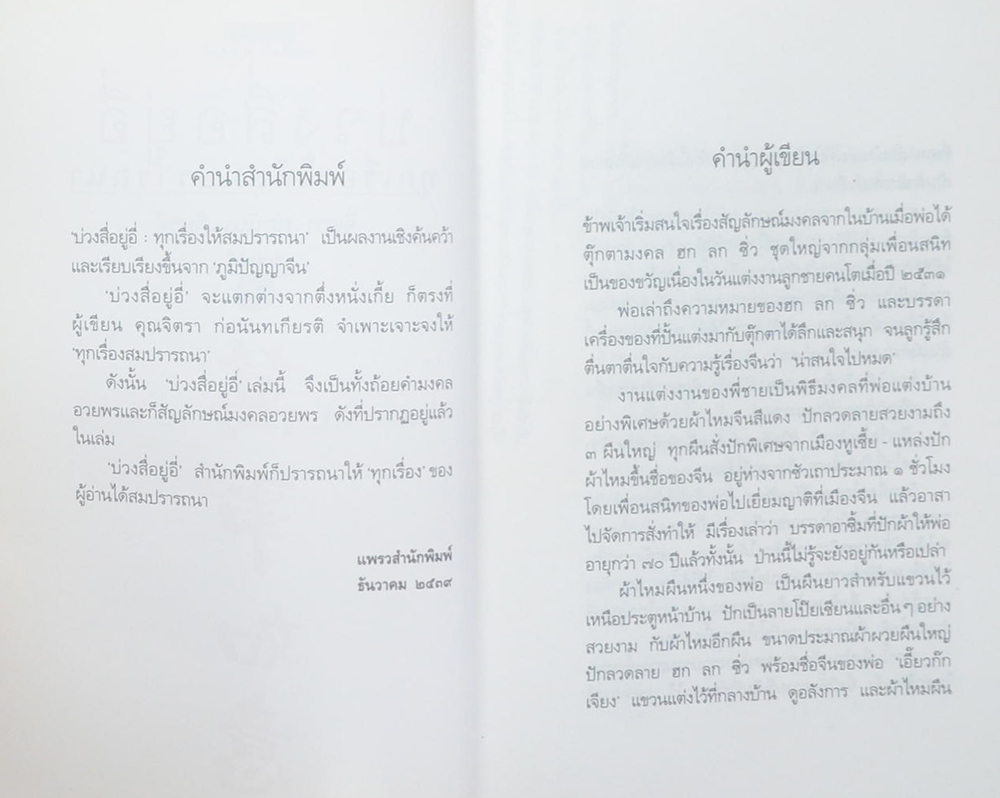 คำนำสำนักพิมพ์
'บ่วงสื่อยู่อี่ : ทุกเรื่องให้สมปรารถนา' เป็นผลงานเชิงค้นคว้า
และเรียบเรียงขึ้นจาก 'ภูมิปัญญาจีน'
'บ่วงสื่อยู่อี่' จะแตกต่างจากตึ่งหนั่งเกี้ย ก็ตรงที่
ผู้เขียน คุณจิตรา ก่อนันทเกียรติ จำเพาะเจาะจงให้
'ทุกเรื่องสมปรารถนา'
ดังนั้น 'บ่วงสื่อยู่อี่' เล่มนี้ จึงเป็นทั้งถ้อยคำมงคล
อวยพรและก็สัญลักษณ์มงคลอวยพร ดังที่ปรากฏอยู่แล้ว
ในเล่ม
'บ่วงสื่อยู่อี่' สำนักพิมพ์ก็ปรารถนาให้ 'ทุกเรื่อง' ของ
ผู้อ่านได้สมปรารถนา
แพรวสำนักพิมพ์
ธันวาคม ๒๕๓๙
คำนำผู้เขียน
ข้าพเจ้าเริ่มสนใจเรื่องสัญลักษณ์มงคลจากในบ้านเมื่อพ่อได้
ตุ๊กตามงคล ฮก ลก ซิ่ว ชุดใหญ่จากกลุ่มเพื่อนสนิท
เป็นของขวัญเนื่องในวันแต่งงานลูกชายคนโตเมื่อปี ๒๕๓๑
พ่อเล่าถึงความหมายของฮก ลก ซิ่ว และบรรดา
เครื่องของที่ปั้นแต่งมากับตุ๊กตาได้ลึกและสนุก จนลูกรู้สึก
ตื่นตาตื่นใจกับความรู้เรื่องจีนว่า 'น่าสนใจไปหมด'
งานแต่งงานของพี่ชายเป็นพิธีมงคลที่พ่อแต่งบ้าน
อย่างพิเศษด้วยผ้าไหมจีนสีแดง ปักลวดลายสวยงามถึง
๓ ผืนใหญ่ ทุกผืนสั่งปักพิเศษจากเมืองหูเซี้ย - แหล่งปัก
ผ้าไหมขึ้นชื่อของจีน อยู่ห่างจากซัวเถาประมาณ ๑ ชั่วโมง
โดยเพื่อนสนิทของพ่อไปเยี่ยมญาติที่เมืองจีน แล้วอาสา
ไปจัดการสั่งทำให้ มีเรื่องเล่าว่า บรรดาอาซิ้มที่ปักผ้าให้พ่อ
อายุกว่า ๗๐ ปีแล้วทั้งนั้น ป่านนี้ไม่รู้จะยังอยู่กันหรือเปล่า
ผ้าไหมผืนหนึ่งของพ่อ เป็นผืนยาวสำหรับแขวนไว้
เหนือประตูหน้าบ้าน ปักเป็นลายโป๊ยเซียนและอื่นๆ อย่าง
สวยงาม กับผ้าไหมอีกผืน ขนาดประมาณผ้าผวยผืนใหญ่
ปักลวดลาย ฮก ลก ซิ่ว พร้อมชื่อจีนของพ่อ 'เอี๊ยวก๊ก
เจียง' แขวนแต่งไว้ที่กลางบ้าน ดูอลังการ และผ้าไหมผืน